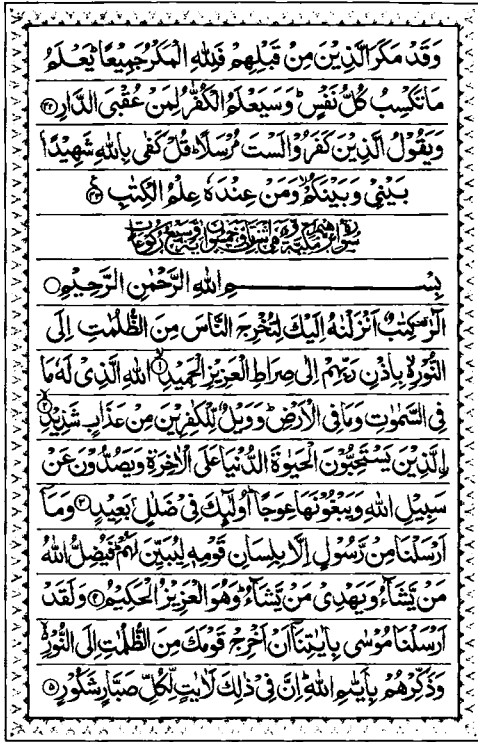 وَقَدْ مَكَرَ الَّذِيْنَ مِنْ قَبْلِهِمْ فَلِلّٰهِ الْمَكْرُ جَمِيْعًا ؕ يَعْلَمُ
مَا تَكْسِبُ كُلُّ نَفْسٍ ؕ وَسَيَعْلَمُ الْكُفّٰرُ لِمَنْ عُقْبَى الدَّارِ ۝۴۲
وَيَقُوْلُ الَّذِيْنَ كَفَرُوْا لَسْتَ مُرْسَلًا ؕ قُلْ كَفٰى بِاللّٰهِ شَهِيْدًۢا
بَيْنِيْ وَبَيْنَكُمْ ۙ وَمَنْ عِنْدَهٗ عِلْمُ الْكِتٰبِ ۝۴۳
بِسْمِ اللّٰهِ الرَّحْمٰنِ الرَّحِيْمِ ۝
الٓرٰ ۫ كِتٰبٌ اَنْزَلْنٰهُ اِلَيْكَ لِتُخْرِجَ النَّاسَ مِنَ الظُّلُمٰتِ اِلَى
النُّوْرِ ۙ بِاِذْنِ رَبِّهِمْ اِلٰى صِرَاطِ الْعَزِيْزِ الْحَمِيْدِ ۝۱ اللّٰهِ الَّذِيْ لَهٗ مَا
فِي السَّمٰوٰتِ وَمَا فِي الْاَرْضِ ؕ وَوَيْلٌ لِّلْكٰفِرِيْنَ مِنْ عَذَابٍ شَدِيْدِ ۝۲
ۙالَّذِيْنَ يَسْتَحِبُّوْنَ الْحَيٰوةَ الدُّنْيَا عَلَى الْاٰخِرَةِ وَيَصُدُّوْنَ عَنْ
سَبِيْلِ اللّٰهِ وَيَبْغُوْنَهَا عِوَجًا ؕ اُولٰٓئِكَ فِيْ ضَلٰلٍۭ بَعِيْدٍ ۝۳ وَمَآ
اَرْسَلْنَا مِنْ رَّسُوْلٍ اِلَّا بِلِسَانِ قَوْمِهٖ لِيُبَيِّنَ لَهُمْ ؕ فَيُضِلُّ اللّٰهُ
مَنْ يَّشَآءُ وَيَهْدِيْ مَنْ يَّشَآءُ ؕ وَهُوَ الْعَزِيْزُ الْحَكِيْمُ ۝۴ وَلَقَدْ
اَرْسَلْنَا مُوْسٰى بِاٰيٰتِنَآ اَنْ اَخْرِجْ قَوْمَكَ مِنَ الظُّلُمٰتِ اِلَى النُّوْرِ ۙ
وَذَكِّرْهُمْ بِاَيّٰىمِ اللّٰهِ ؕ اِنَّ فِيْ ذٰلِكَ لَاٰيٰتٍ لِّكُلِّ صَبَّارٍ شَكُوْرٍ ۝۵